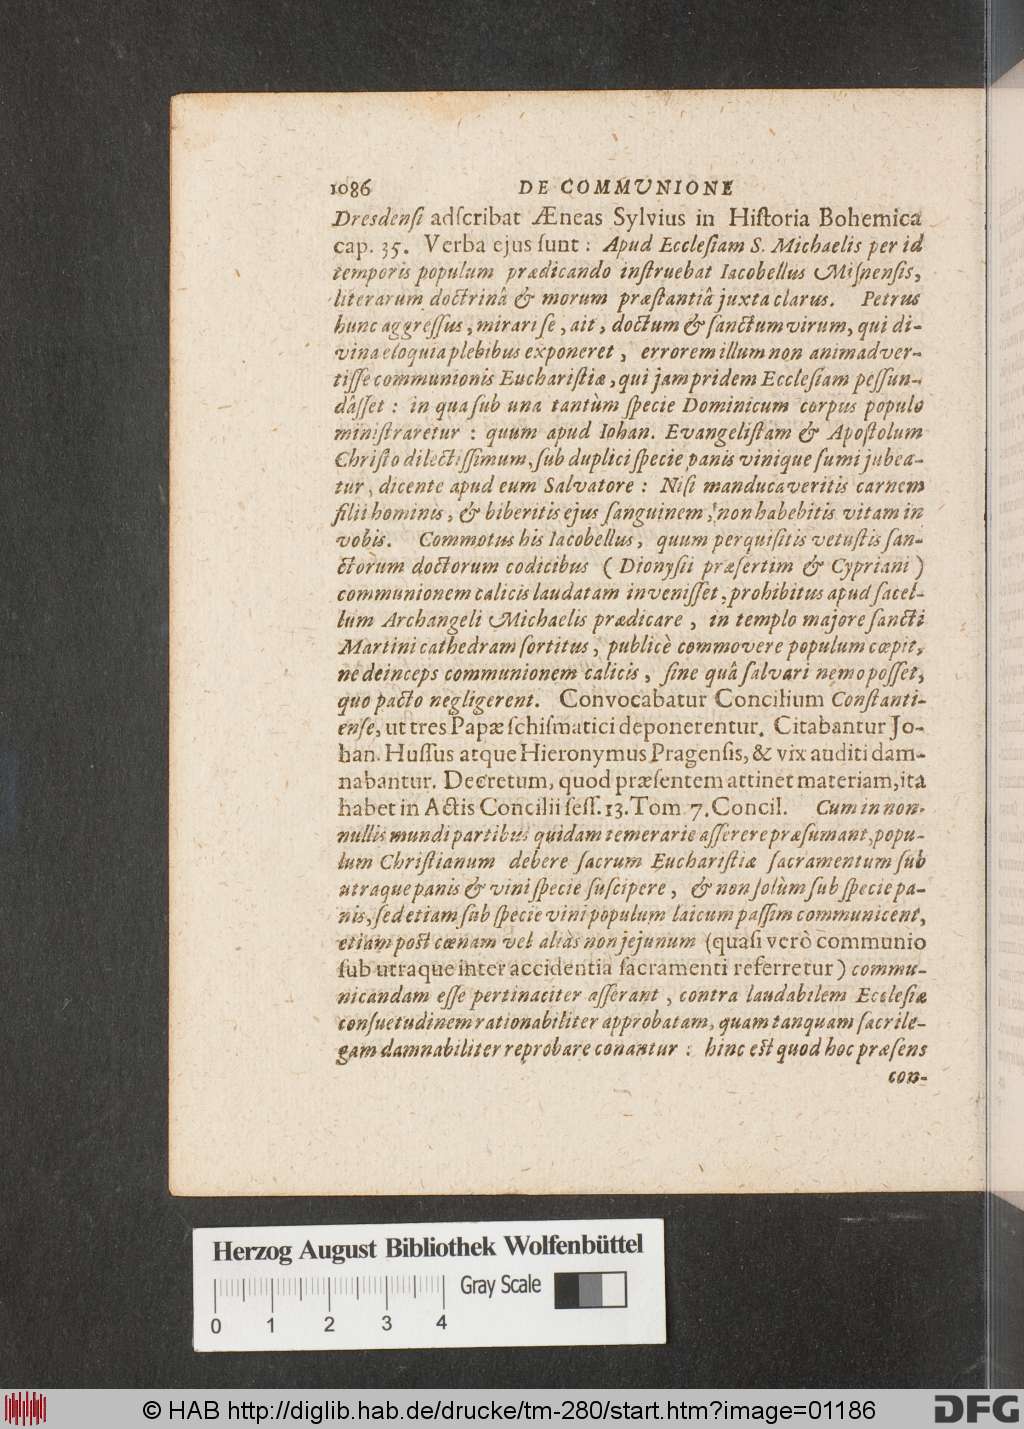 1086 DE COMMVNIONE
Dresdensi adſcribat Æneas Sylvius in Hiſtoria Bohemica
cap. 35. Verba ejus ſunt: Apud Eccleſiam S. Michaelis per id
temporis populum prædicando inſtruebat Iacobellus Miſnenſis,
literarum doctrinâ & morum præſtantiâ juxta clarus. Petrus
hunc aggreſſus, mirari ſe, ait, doctum & ſanctum virum, qui di-
vina eloquia plebibus exponeret, errorem illum non animadver-
tiſſe communionis Euchariſtiæ, qui jampridem Eccleſiam peſſun-
dâſſet: in qua ſub una tantùm ſpecie Dominicum corpus populo
miniſtraretur: quum apud Iohan. Evangeliſtam & Apoſtolum
Chriſto dilectiſſimum, ſub duplici ſpecie panis vinique ſumi jubea-
tur, dicente apud eum Salvatore: Niſi manducaveritis carnem
filii hominis, & biberitis ejus ſanguinem, non habebitis vitam in
vobis. Commotus his Iacobellus, quum perquiſitis vetuſtis ſan-
ctorum doctorum codicibus (Dionyſii præſertim & Cypriani)
communionem calicis laudatam inveniſſet, prohibitus apud ſacel-
lum Archangeli Michaelis prædicare, in templo majore ſancti
Martini cathedram ſortitus, publicè commovere populum cœpit,
ne deinceps communionem calicis, ſine quâ ſalvari nemo poſſet,
quo pacto negligerent. Convocabatur Concilium Conſtanti-
enſe, ut tres Papæ ſchiſmatici deponerentur. Citabantur Jo-
han. Huſſus atque Hieronymus Pragenſis, & vix auditi dam-
nabantur. Decretum, quod præſentem attinet materiam, ita
habet in Actis Concilii ſeſſ. 13. Tom 7. Concil. Cum in non-
nullis mundi partibus quidam temerarie aſſerere præſumant, popu-
lum Chriſtianum debere ſacrum Euchariſtiæ ſacramentum ſub
utraque panis & vini ſpecie ſuſcipere, & non ſolùm ſub ſpecie pa-
nis, ſed etiam ſub ſpecie vini populum laicum paſſim communicent,
etiam poſt cœnam vel aliàs non jejunum (quaſi verò communio
ſub utraque inter accidentia ſacramenti referretur) commu-
nicandam eſſe pertinaciter aſſerant, contra laudabilem Eccleſiæ
conſuetudinem rationabiliter approbatam, quam tanquam ſacrile-
gam damnabiliter reprobare conantur: hinc eſt quod hoc præſens
con-
Herzog August Bibliothek Wolfenbüttel
Gray Scale
0 1 2 3 4
© HAB http://diglib.hab.de/drucke/tm-280/start.htm?image=01186
DFG